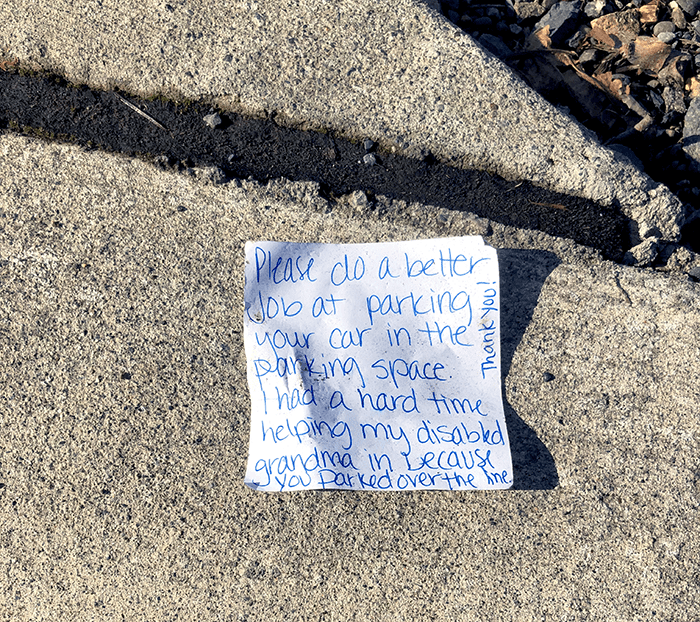 Please do a better
Job at parking
your car in the
parking space.
I had a hard time
helping my disabled
grandma in because
you parked over the line.
Thank you!